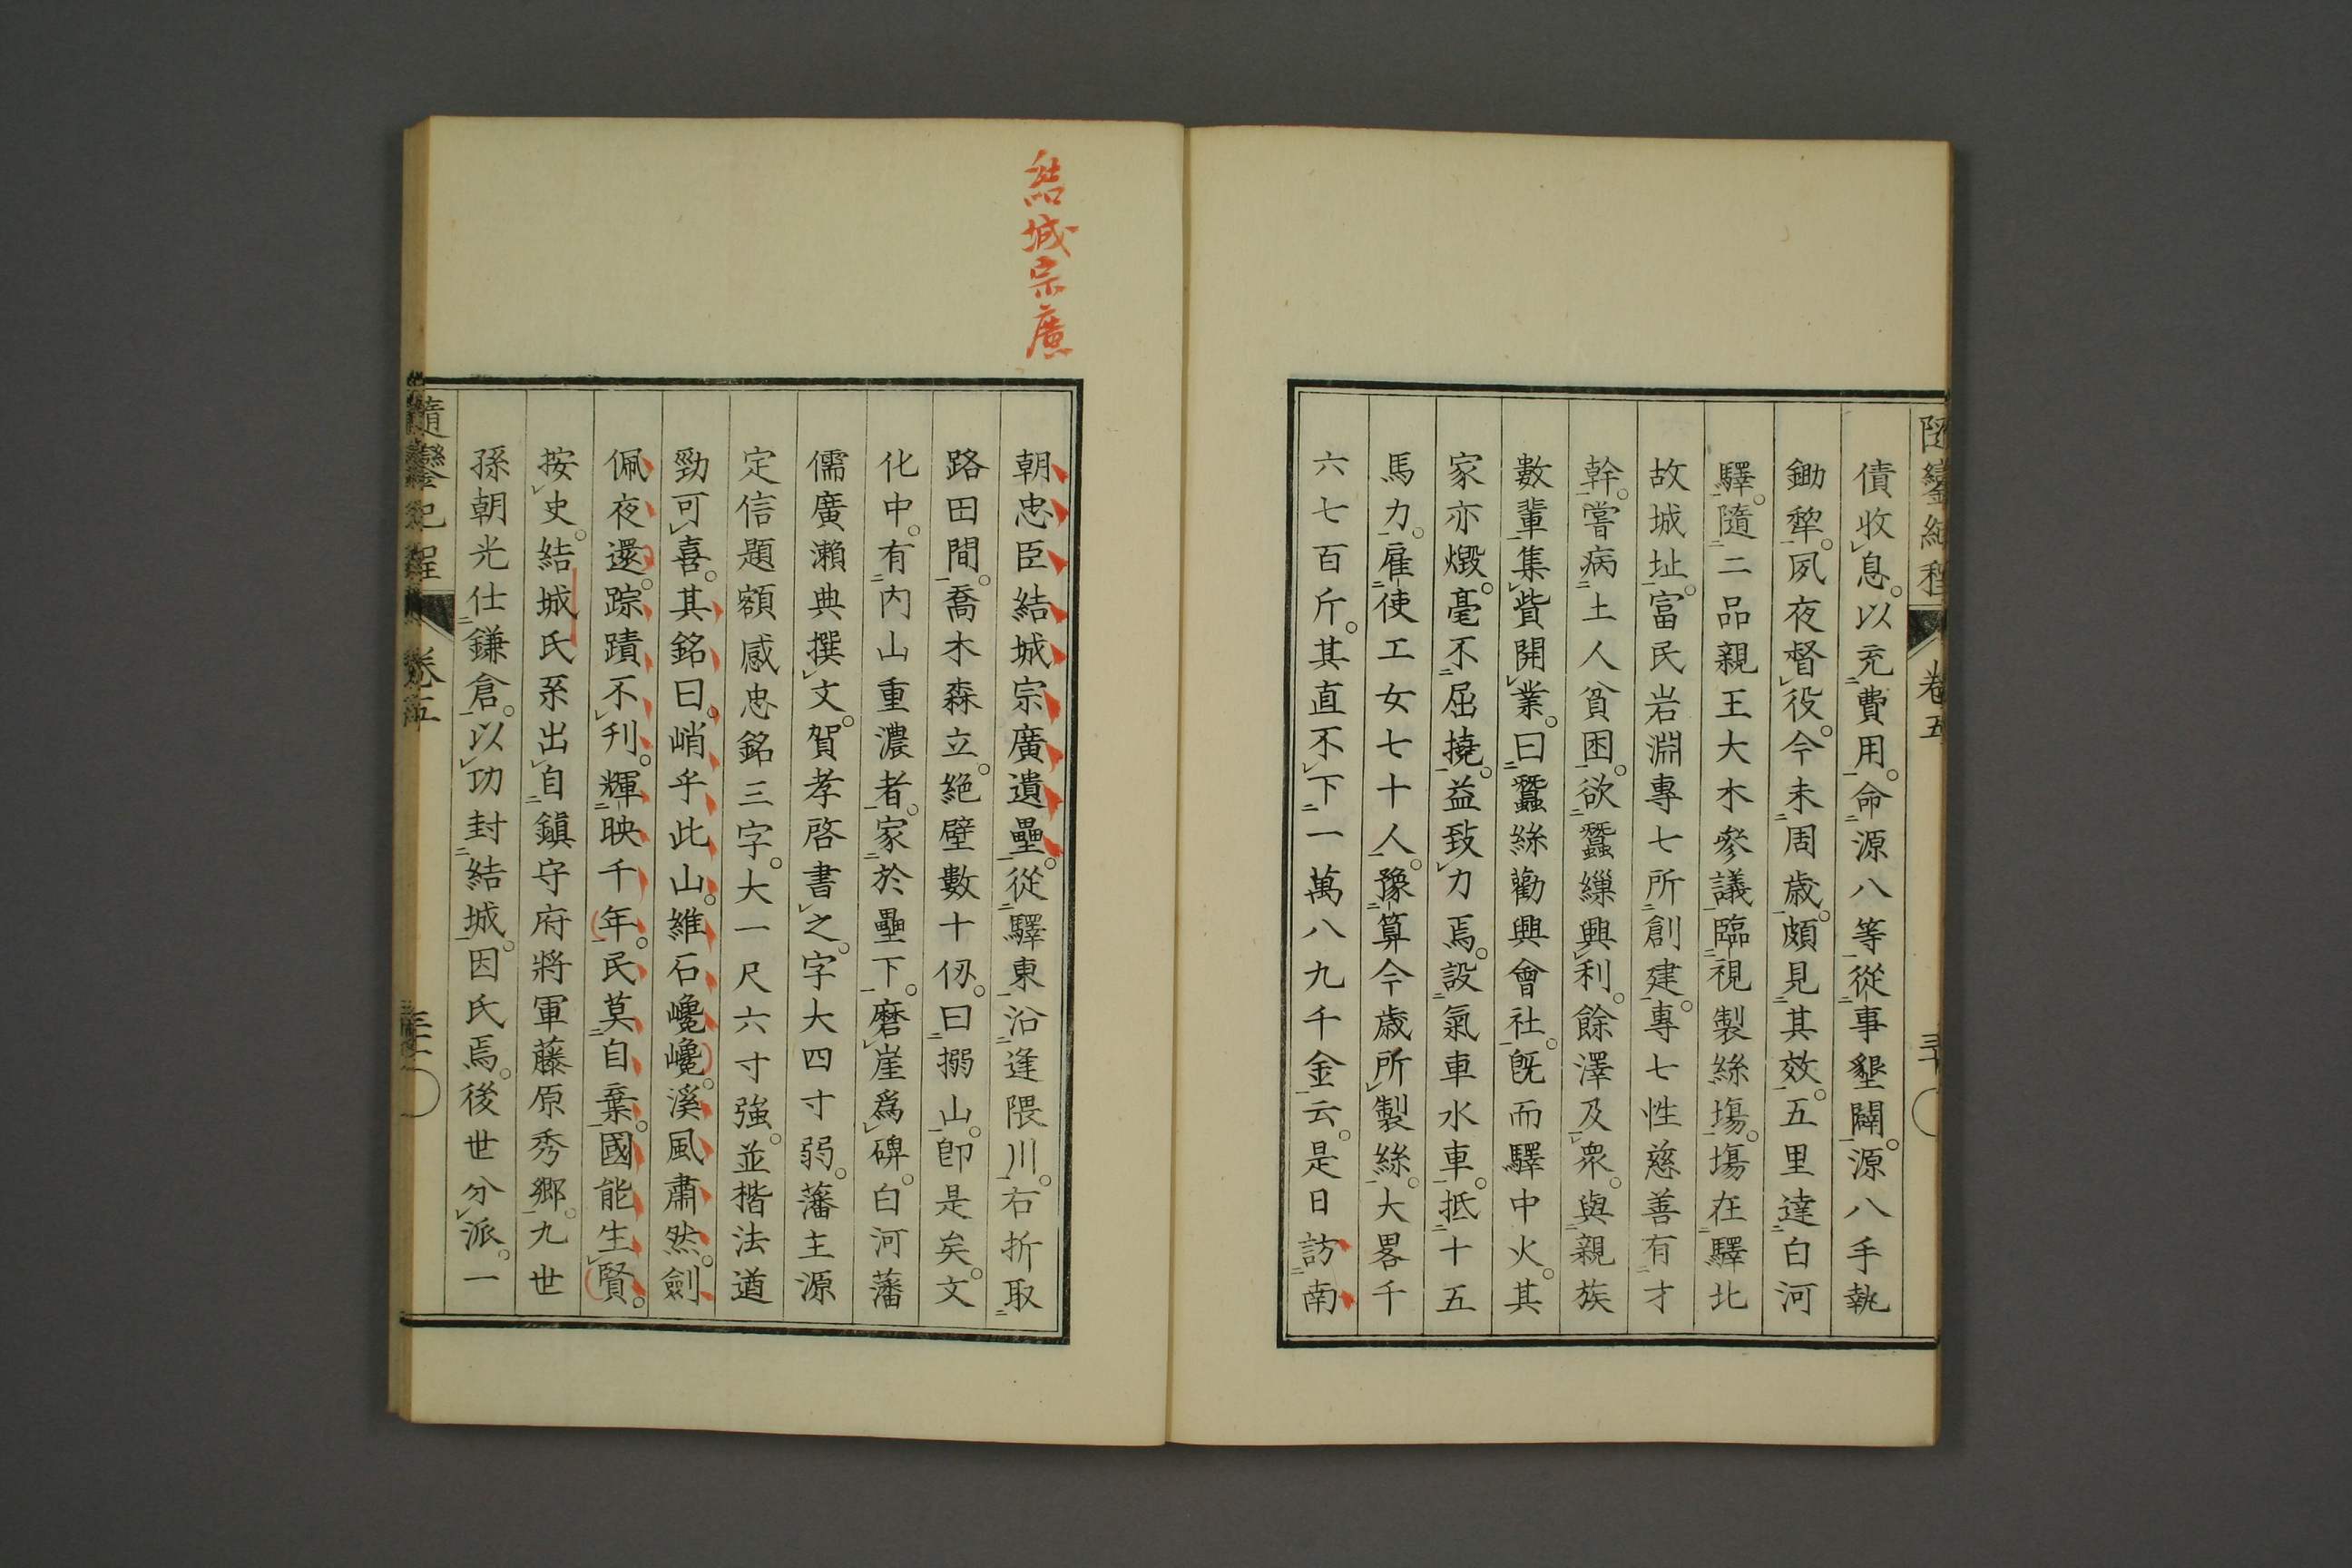 隨鑾紀程 卷五 三十
債收息。以充費用。命源八等從事墾闢。源八手執
鋤犂。夙夜督役。今未周歳。頗見其效。五里達白河
驛。隨二品親王大木參議臨視製絲塲。塲在驛北
故城址。富民岩淵專七所創建。專七性慈善有才
幹。嘗病土人貧困。欲蠶繅興利。餘澤及衆。與親族
數輩集貲開業。曰蠶絲勸興會社。既而驛中火。其
家亦燬。毫不屈撓。益致力焉。設氣車水車。抵十五
馬力。雇使工女七十人。豫算今歳所製絲。大畧千
六七百斤。其直不下一萬八九千金云。是日訪南
結城宗廣
朝忠臣結城宗廣遺壘。從驛東沿逢隈川。右折取
路田間。喬木森立。絶壁數十仭。曰搦山。卽是矣。文
化中。有内山重濃者。家於壘下。磨崖爲碑。白河藩
儒廣瀨典撰文。賀孝啓書之。字大四寸弱。藩主源
定信題額感忠銘三字。大一尺六寸強。並楷法遒
勁可喜。其銘曰。峭乎此山。維石巉巉。溪風肅然。劍
佩夜還。踪蹟不刋。輝映千年。民莫自棄。國能生賢。
按史。結城氏系出自鎭守府將軍藤原秀郷。九世
孫朝光仕鎌倉。以功封結城。因氏焉。後世分派。一
隨鑾紀程 卷五